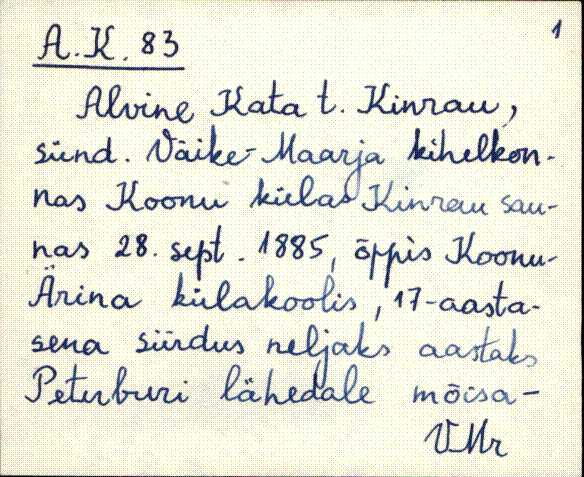 1
A.K. 83
Alvine Kata t. Kinrau,
sünd. Väike-Maarja kihelkon-
nas Koonu külas Kinrau sau-
nas 28. sept. 1885, õppis Koonu-
Ärina külakoolis, 17-aasta-
sena siirdus neljaks aastaks
Peterburi lähedale mõisa-
VMr